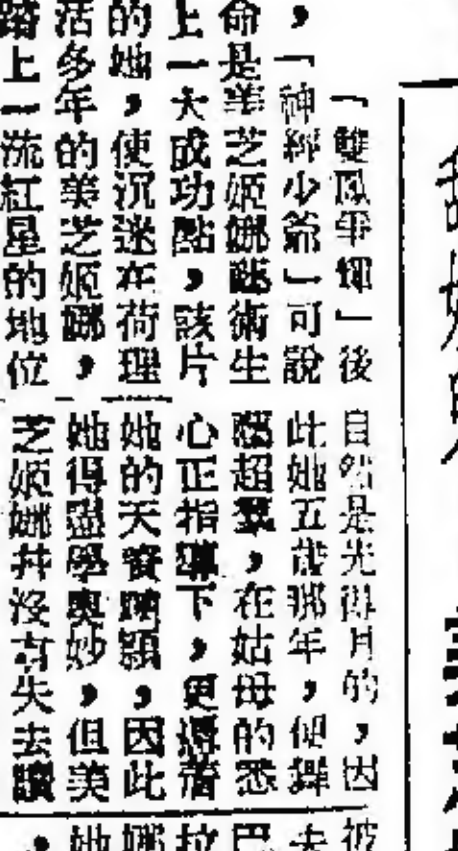 「雙鳳爭輝」後
，「神經少爺」可說
命是美芝姬娜藝術生
上一大成功點，該片
的她，使沉迷在荷理
活多年的美芝姬娜，
踏上一流紅星的地位
自然是先得月的，因
此她五歲那年，便舞
超羣，在姑母的悉
心正指導下，更憑着
她的天資聰穎，因此
她得盡學奧妙，但美
芝姬娜并沒有失去讀
被
夫
巴
拉
娜
她
，